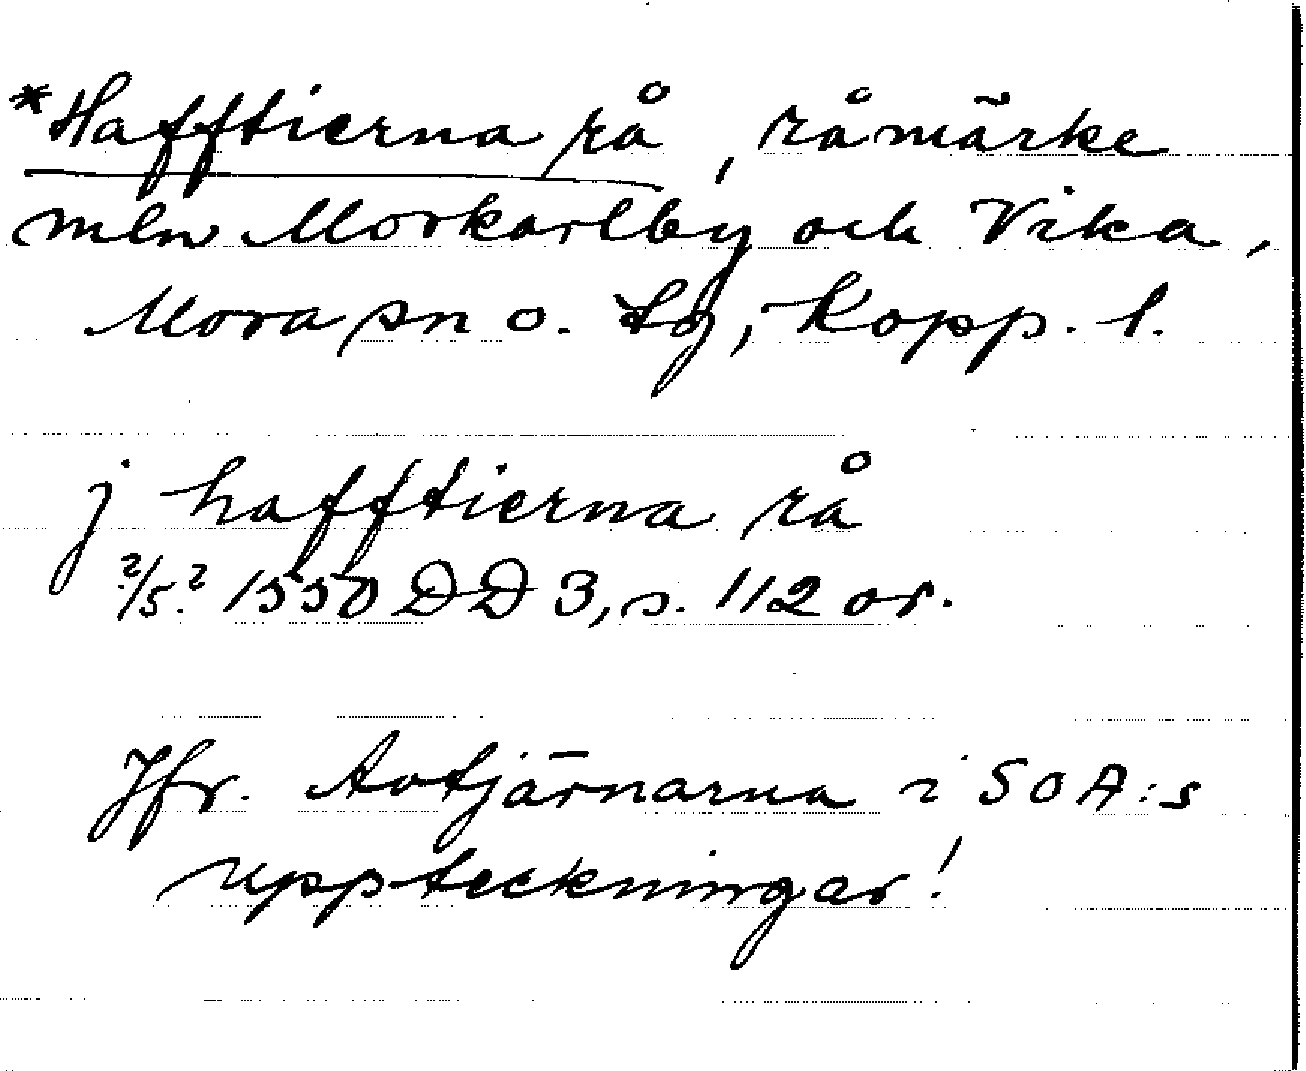 *Hafftierna rå, råmärke
mln Morkarlby och Vika,
Mora sn o. tg, Kopp. l.
j hafftierna rå
?/5.? 1550 DD 3, s. 112 or.
Jfr. Avtjärnarna i SOA:s
uppteckningar!